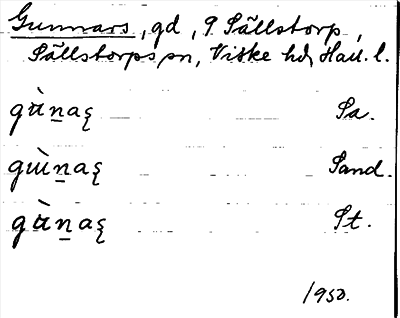 Gunnars, gd, 9 Sällstorp,
Sällstorps sn, Viske hd, Hall. l.
gùn̲aʂ Sa.
gɯ̀n̲aʂ Sand.
gùn̲aʂ St.
1950.